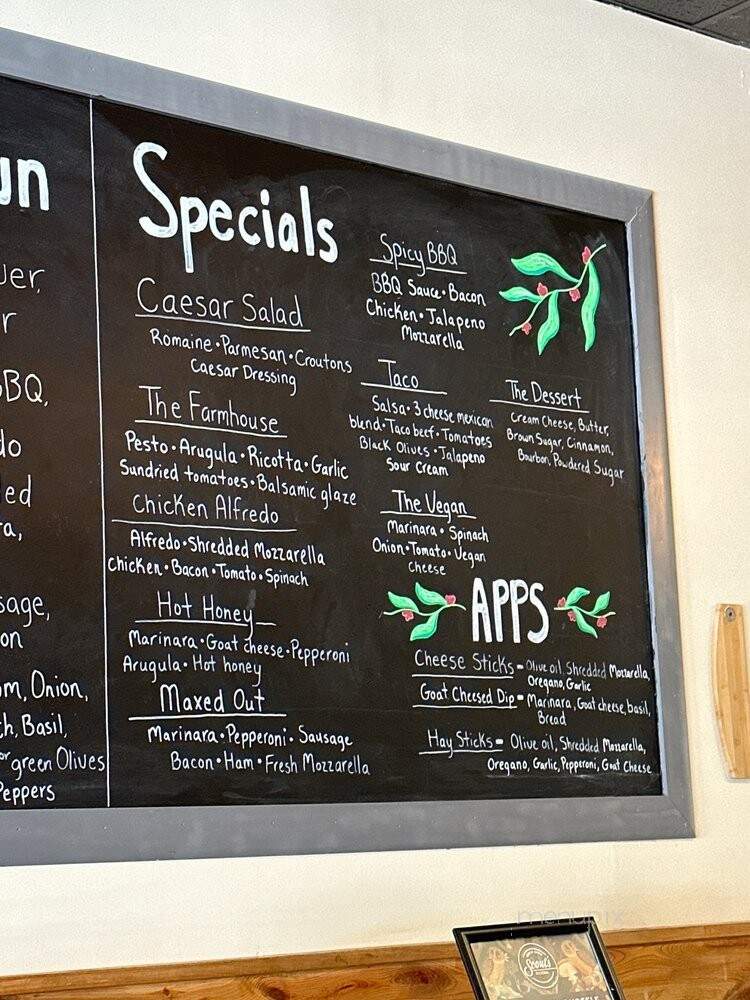 un
r
BBQ,
led
ra,
sage,
on
Onion,
Basil,
or green Olives
Peppers
Specials
Caesar Salad
Romaine • Parmesan • Croutons
Caesar Dressing
The Farmhouse
Pesto • Arugula • Ricotta • Garlic
Sundried tomatoes • Balsamic glaze
Chicken Alfredo
Alfredo • Shredded Mozzarella
Chicken • Bacon • Tomato • Spinach
Hot Honey
Marinara • Goat cheese • Pepperoni
Arugula • Hot honey
Maxed Out
Marinara • Pepperoni • Sausage
Bacon • Ham • Fresh Mozzarella
Spicy BBQ
BBQ Sauce • Bacon
Chicken • Jalapeno
Mozzarella
Taco
Salsa • 3 cheese mexican
blend • Taco beef • Tomatoes
Black Olives • Jalapeno
Sour Cream
The Vegan
Marinara • Spinach
Onion • Tomato • Vegan
cheese
The Dessert
Cream Cheese, Butter,
Brown Sugar, Cinnamon,
Bourbon, Powdered Sugar
APPS
Cheese Sticks - Olive oil, Shredded Mozzarella,
Oregano, Garlic
Goat Cheesed Dip - Marinara, Goat cheese, basil,
Bread
Hay Sticks - Olive oil, Shredded Mozzarella,
Oregano, Garlic, Pepperoni, Goat Cheese
menupix
Scout's